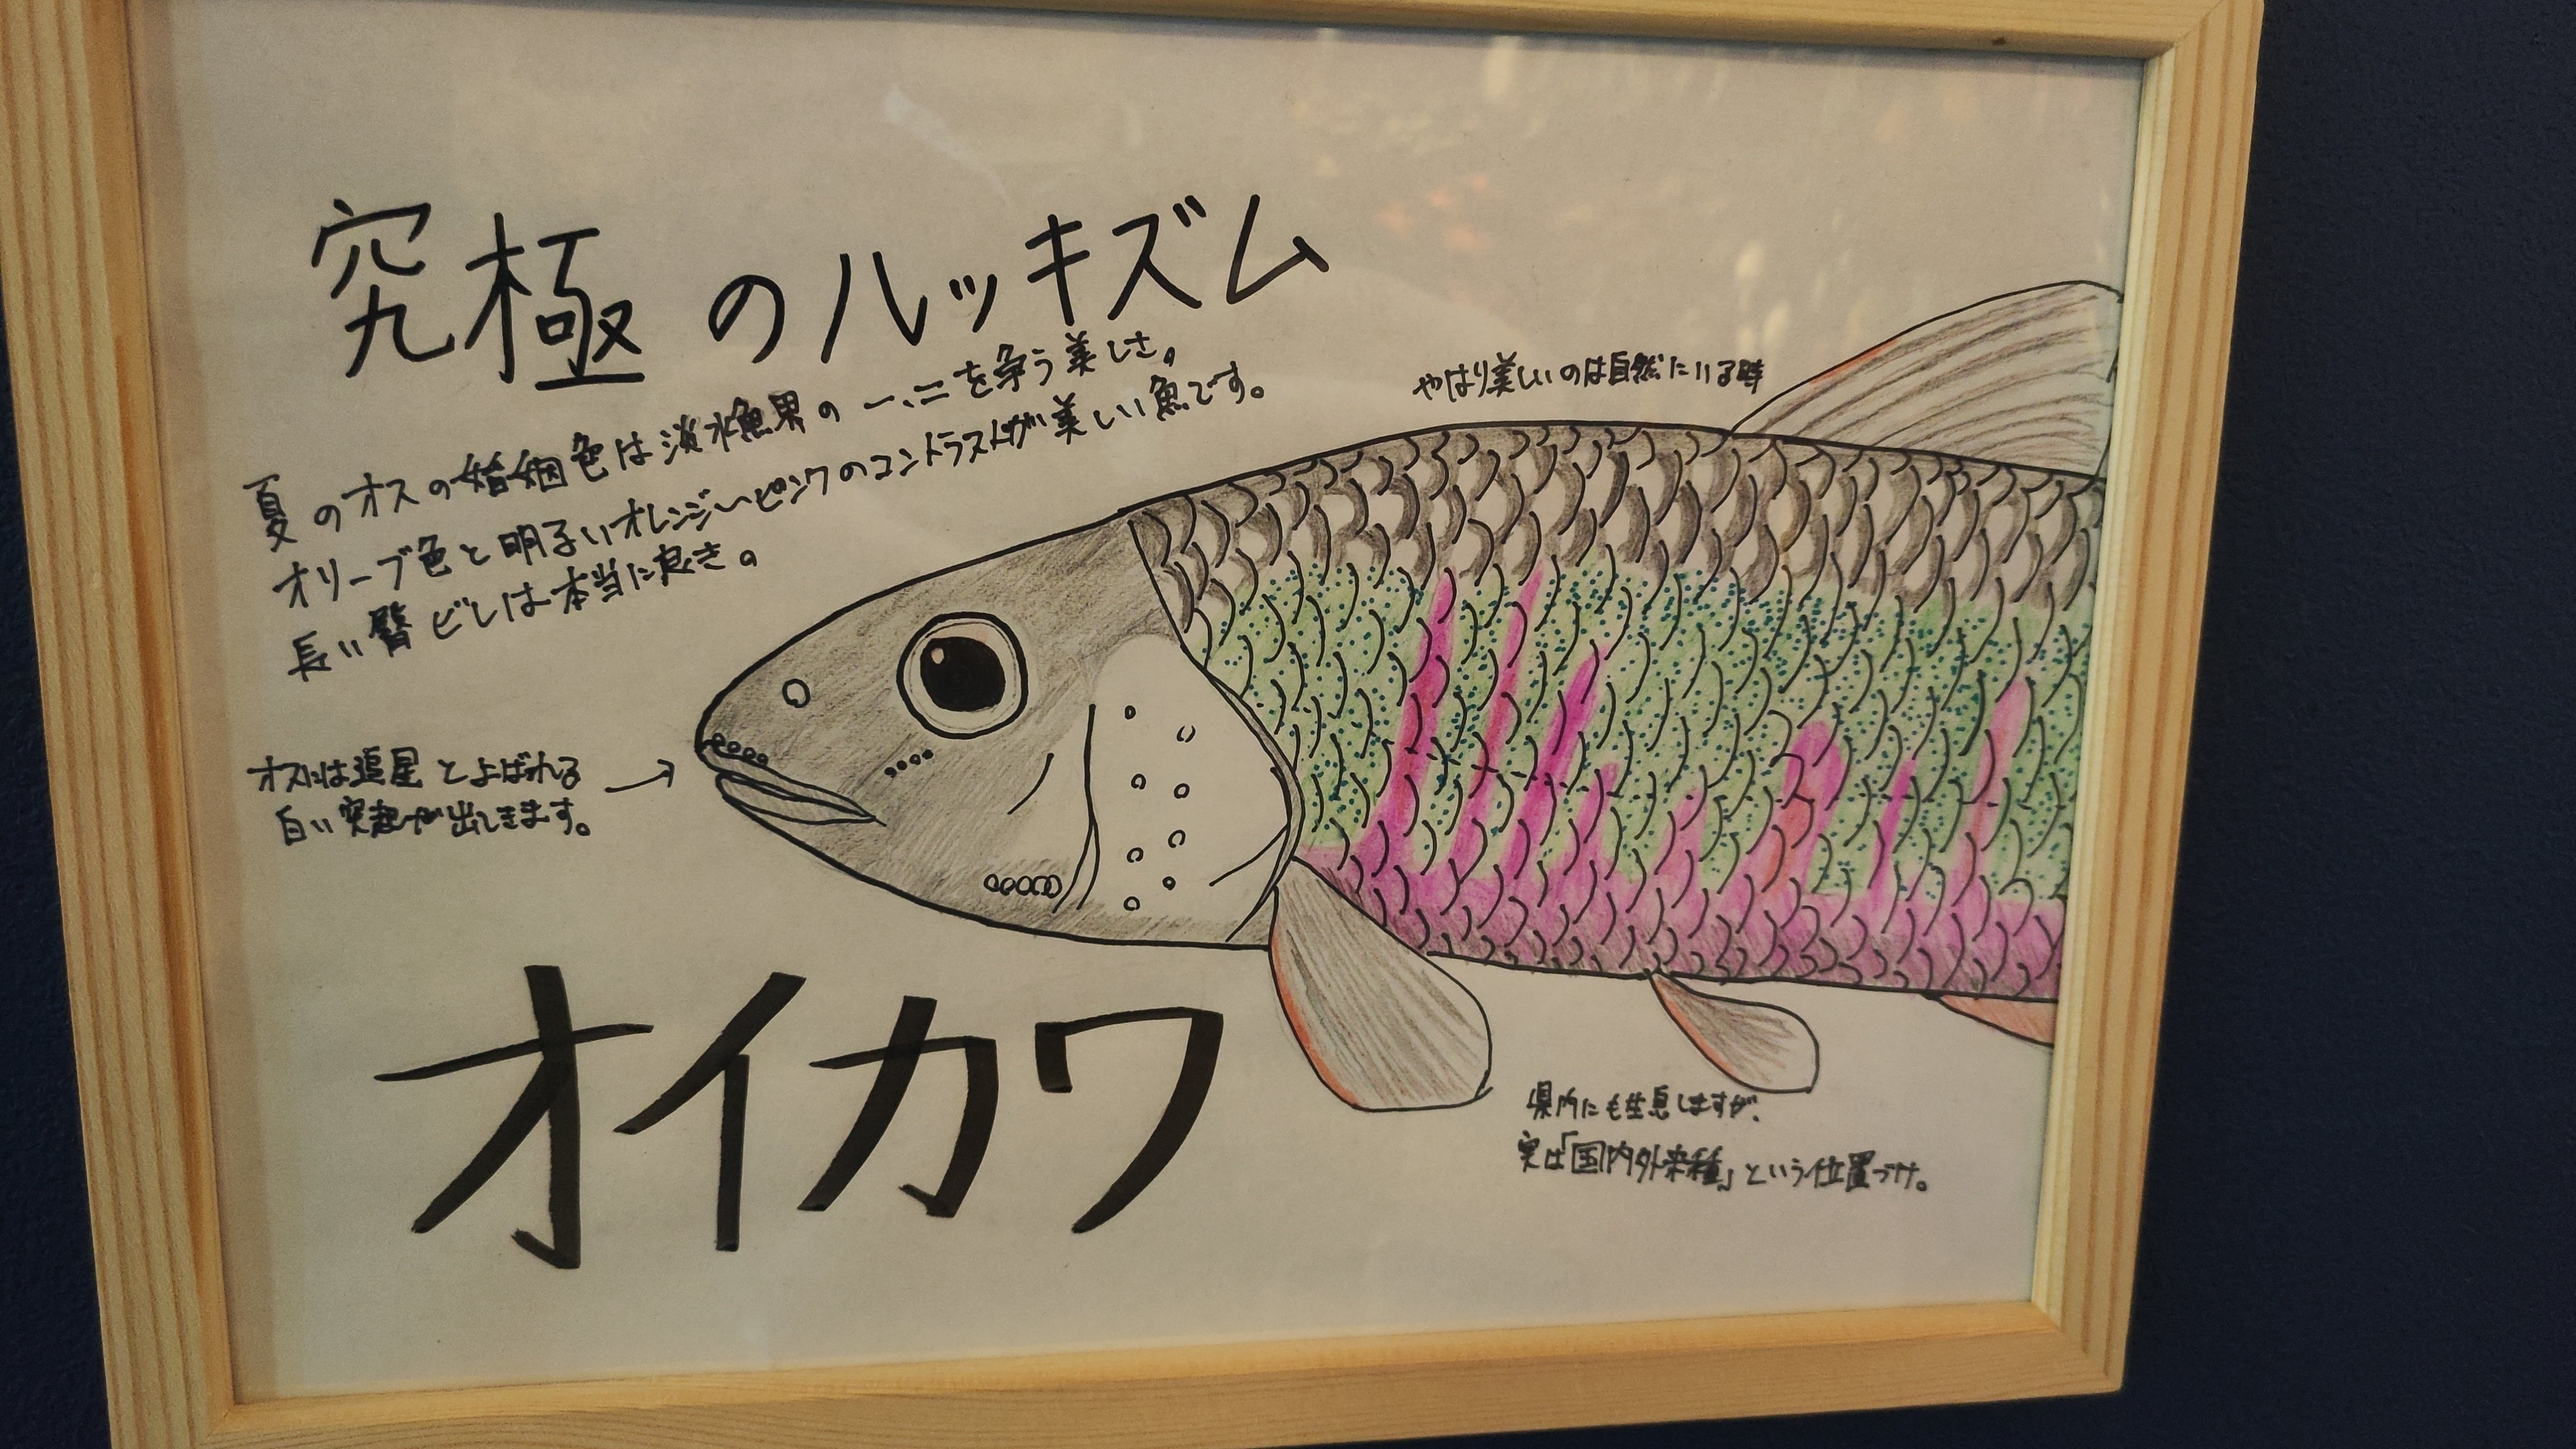 究極のルッキズム
夏のオスの婚姻色は淡水魚界の一、二を争う美しさ。
オリーブ色と明るいオレンジ〜ピンクのコントラストが美しい魚です。
長い臀ビレは本当に良き。
やはり美しいのは自然にいる時
オスには追星とよばれる
白い突起が出てきます。
オイカワ
県内にも生息しますが、
実は「国内外来種」という位置づけ。